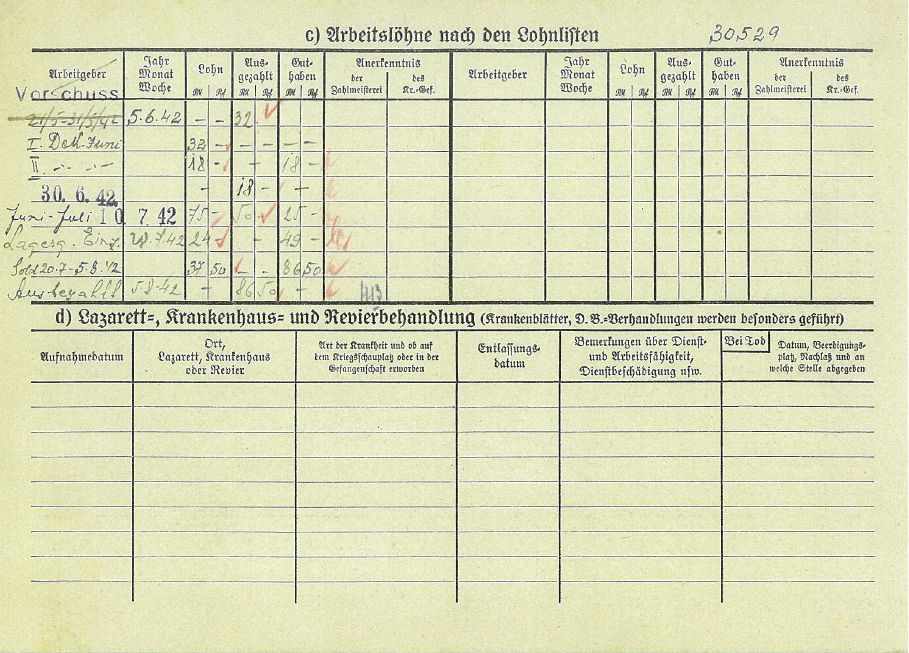 c) Arbeitslöhne nach den Lohnlisten 30529
Arbeitgeber Jahr Monat Woche Lohn RM Pf Ausgezahlt RM Pf Guthaben RM Pf Anerkenntnis der Zahlmeisterei des Kr.-Gef. Arbeitgeber Jahr Monat Woche Lohn RM Pf Ausgezahlt RM Pf Guthaben RM Pf Anerkenntnis der Zahlmeisterei des Kr.-Gef.
Vorschuss
21/5-31/5/42 5.6.42 - - 32 -
I. Dek. Juni 32 - - - - -
II. - - 18 - - 18 -
30. 6. 42 - 18 - -
Juni-Juli 10 7. 42 75 - 50 - 25 -
7.42 24 - - 49 -
Sold 20.7-5.8.42 37 50 - - 86 50
Ausbezahlt 5.8.42 - 86 50 -
d) Lazarett-, Krankenhaus- und Revierbehandlung (Krankenblätter, D. B.-Verhandlungen werden besonders geführt)
Aufnahmedatum Ort, Lazarett, Krankenhaus oder Revier Art der Krankheit und ob auf dem Kriegsschauplatz oder in der Gefangenschaft erworben Entlassungsdatum Bemerkungen über Dienst- und Arbeitsfähigkeit, Dienstbeschädigung usw. Bei Tod Datum, Beerdigungsplatz, Nachlaß und an welche Stelle abgegeben